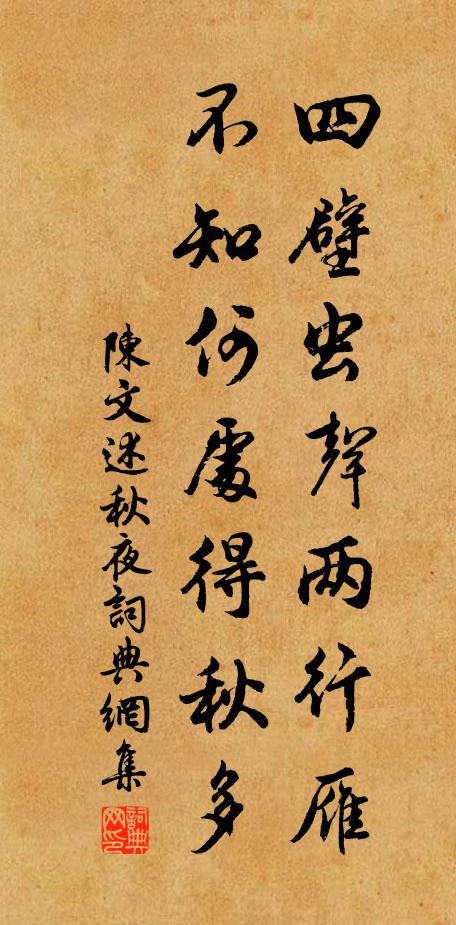 四壁虫聲两行雁
不知何處得秋多
陳文述秋夜詞典網集
詞典网印